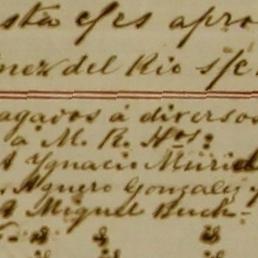 esta cjes apro
nez del Rio s/c
agados á diversos
á M. R. Hos:
A Ygnacio Murie
Agüero Gonzalez y
A Miguel Buch-